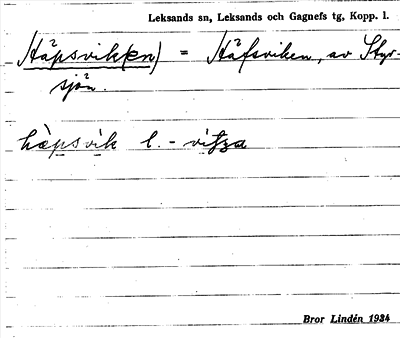 Leksands sn, Leksands och Gagnefs tg, Kopp. l.
Håpsvik(en) = Håfsviken, av Styr-
sjön.
hàpsvik l. - vitʒa
Bror Lindén 1934